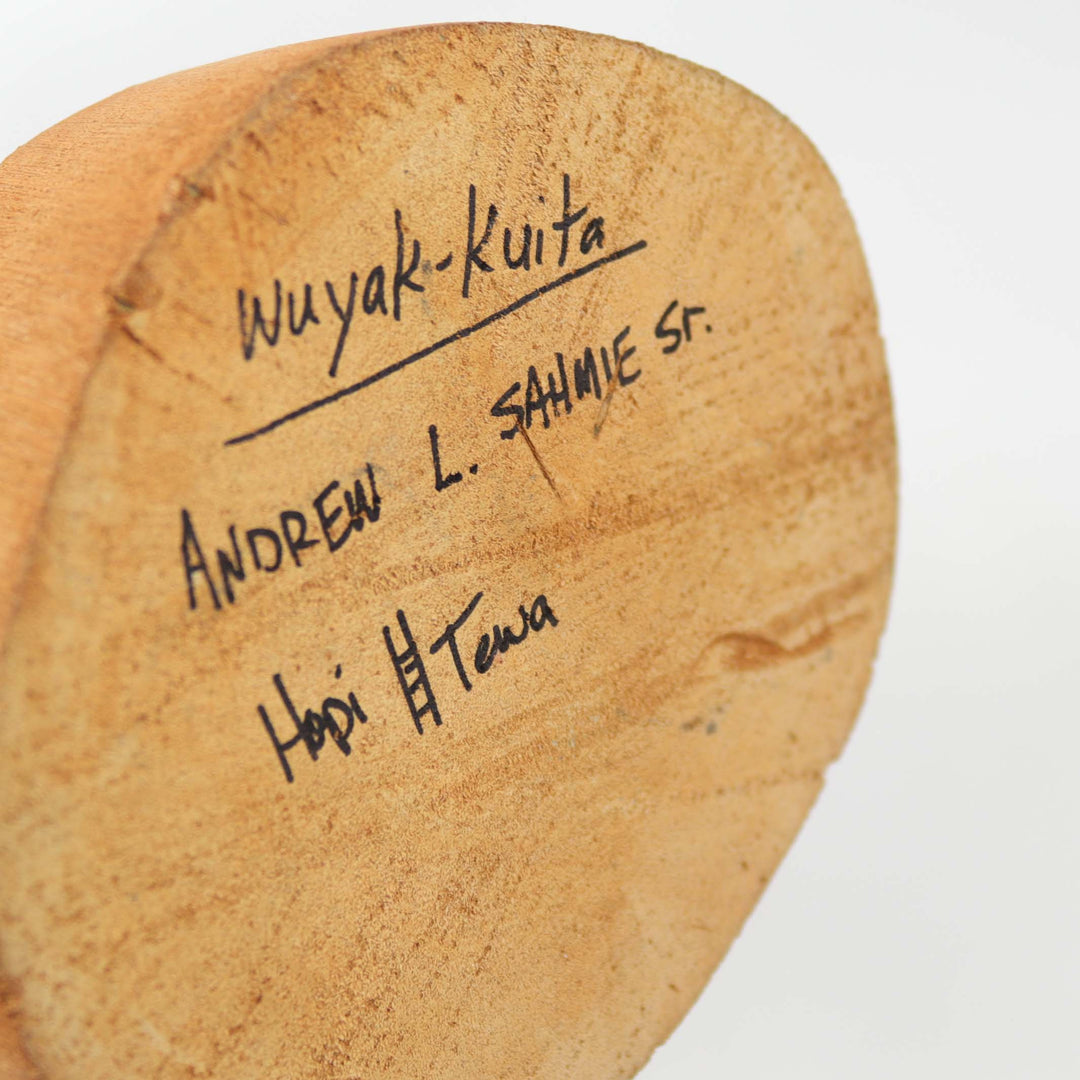 Wuyak-Kuita
ANDREW L. SAHMIE Sr.
Hopi Tewa